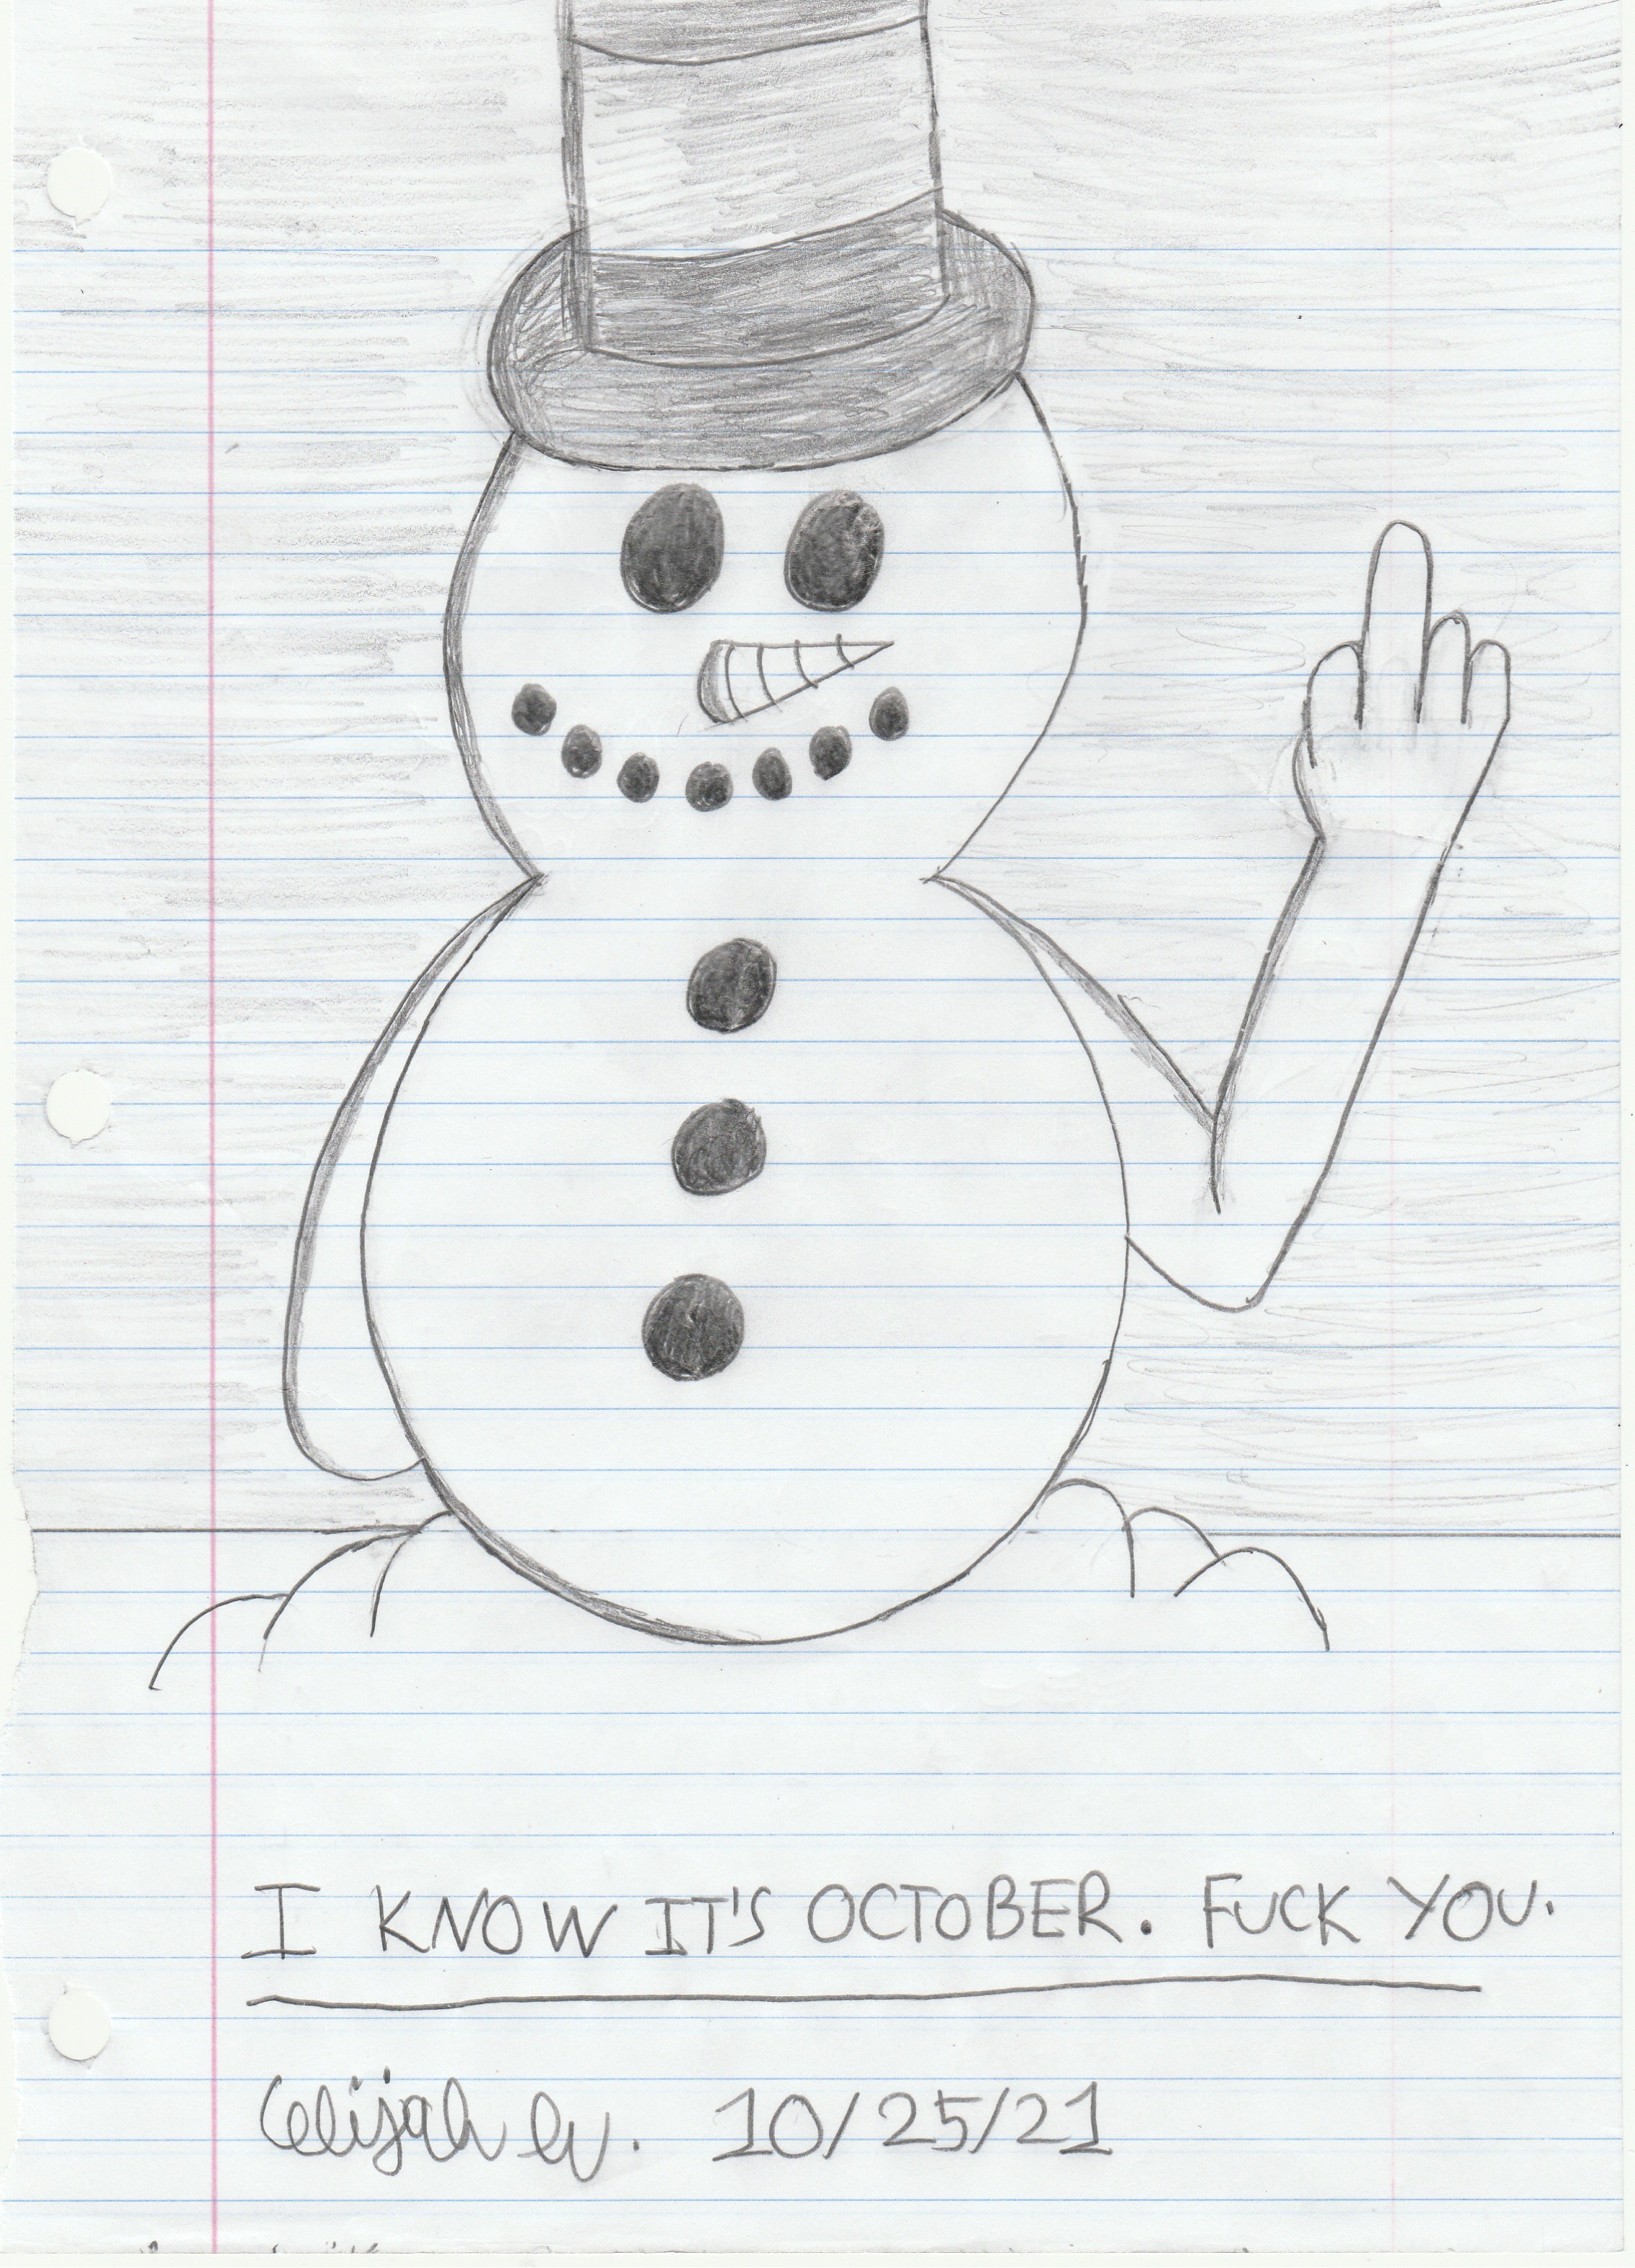 I KNOW IT'S OCTOBER. FUCK YOU.
Elijah W. 10/25/21